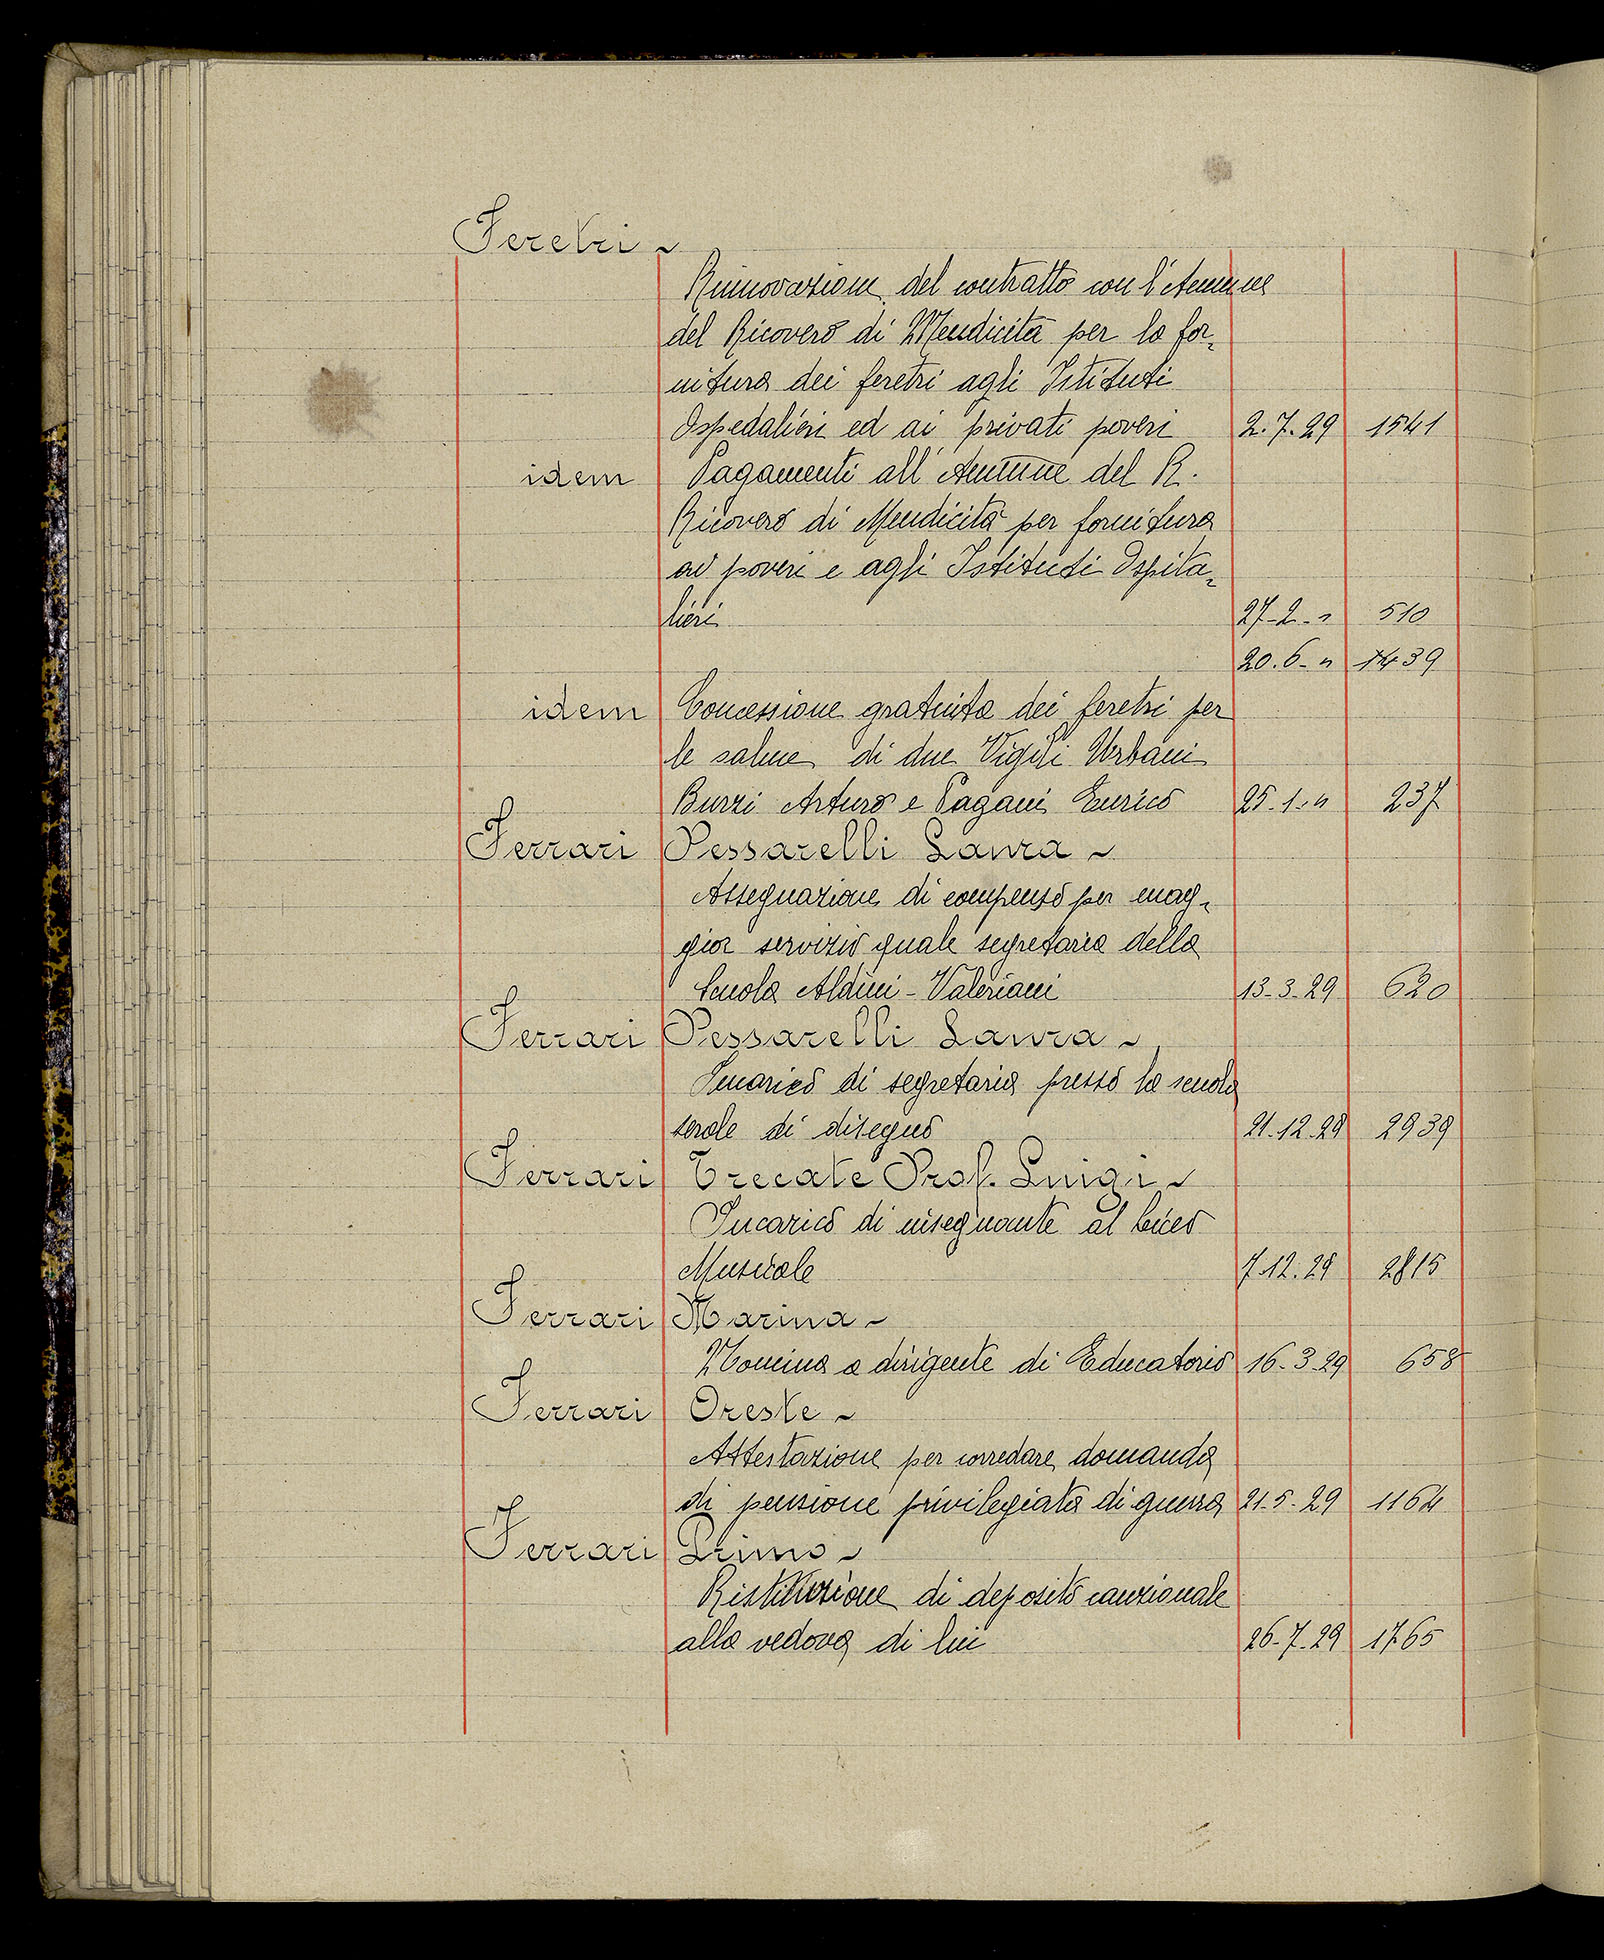 Feretri ~
Rinnovazione del contratto con l'Ammne
del Ricovero di Mendicità per la for-
nitura dei feretri agli Istituti
Ospedalieri ed ai privati poveri 2.7.29 1541
idem Pagamenti all'Ammne del R.
Ricovero di Mendicità per fornitura
ai poveri e agli Istituti Ospita-
lieri 27-2-" 510
20.6-" 1439
idem Concessione gratuita dei feretri per
le salme di due Vigili Urbani
Burzi Arturo e Pagani Enrico 25.1." 237
Ferrari Pessarelli Laura ~
Assegnazione di compenso per mag-
gior servizio quale segretaria della
Scuola Aldini-Valeriani 13-3-29 620
Ferrari Pessarelli Laura ~
Incarico di segretaria presso la scuola
serale di disegno 21.12.29 2939
Ferrari Trecate Prof. Luigi ~
Incarico di insegnante al Liceo
Musicale 7.12.29 2815
Ferrari Marina ~
Nomina a dirigente di Educatorio 16-3-29 658
Ferrari Oreste ~
Attestazione per corredare domanda
di pensione privilegiata di guerra 21-5-29 1164
Ferrari Primo ~
Restituzione di deposito cauzionale
alla vedova di lui 26-7-29 1765